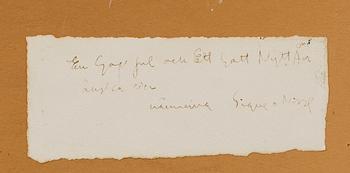 En God Jul och Ett Gott Nytt År
önskar eder
vännerna Signe o Nisse